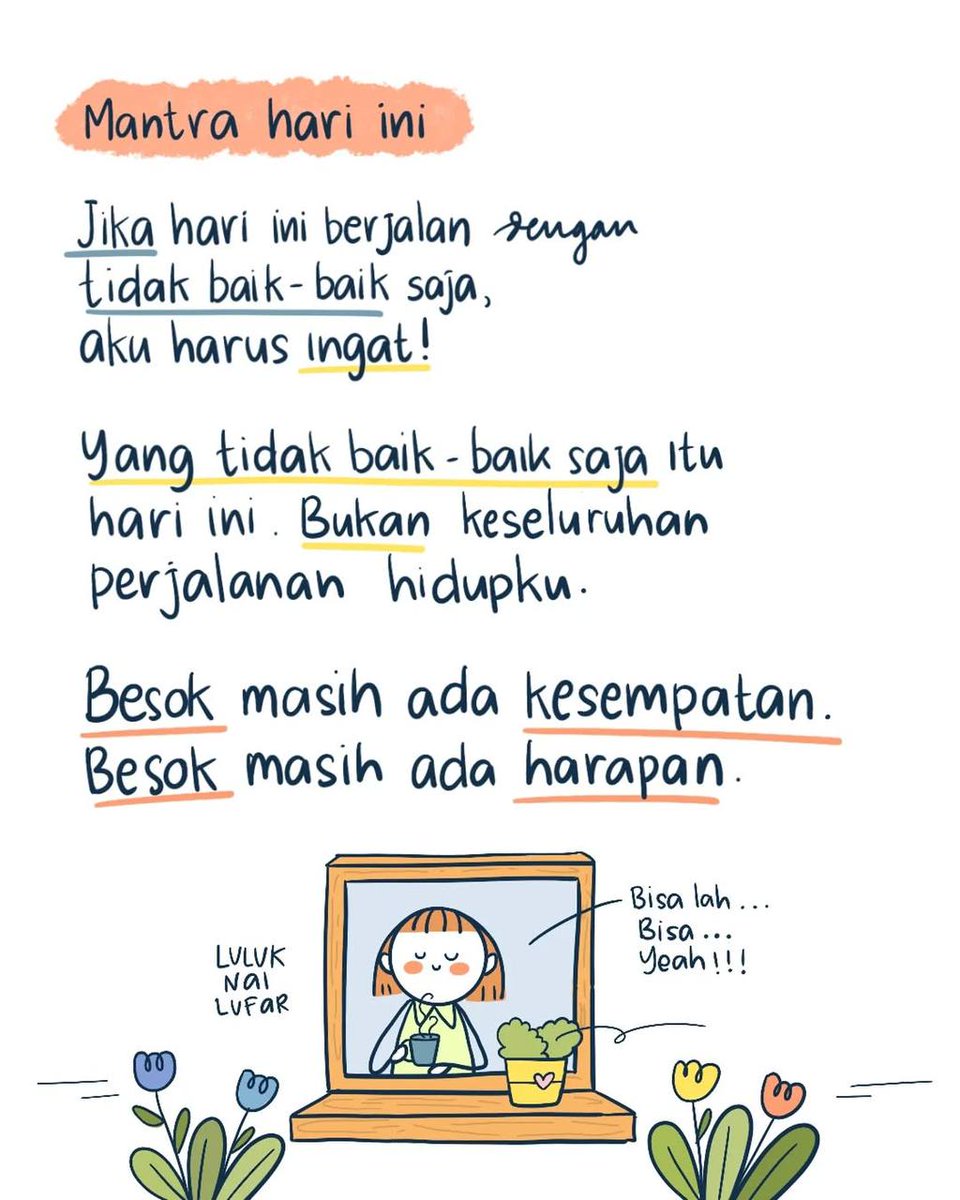 Mantra hari ini
Jika hari ini berjalan dengan
tidak baik-baik saja,
aku harus ingat!
Yang tidak baik-baik saja itu
hari ini. Bukan keseluruhan
perjalanan hidupku.
Besok masih ada kesempatan.
Besok masih ada harapan.
Bisa lah...
Bisa...
Yeah!!!
LULUK
NAI
LUFAR